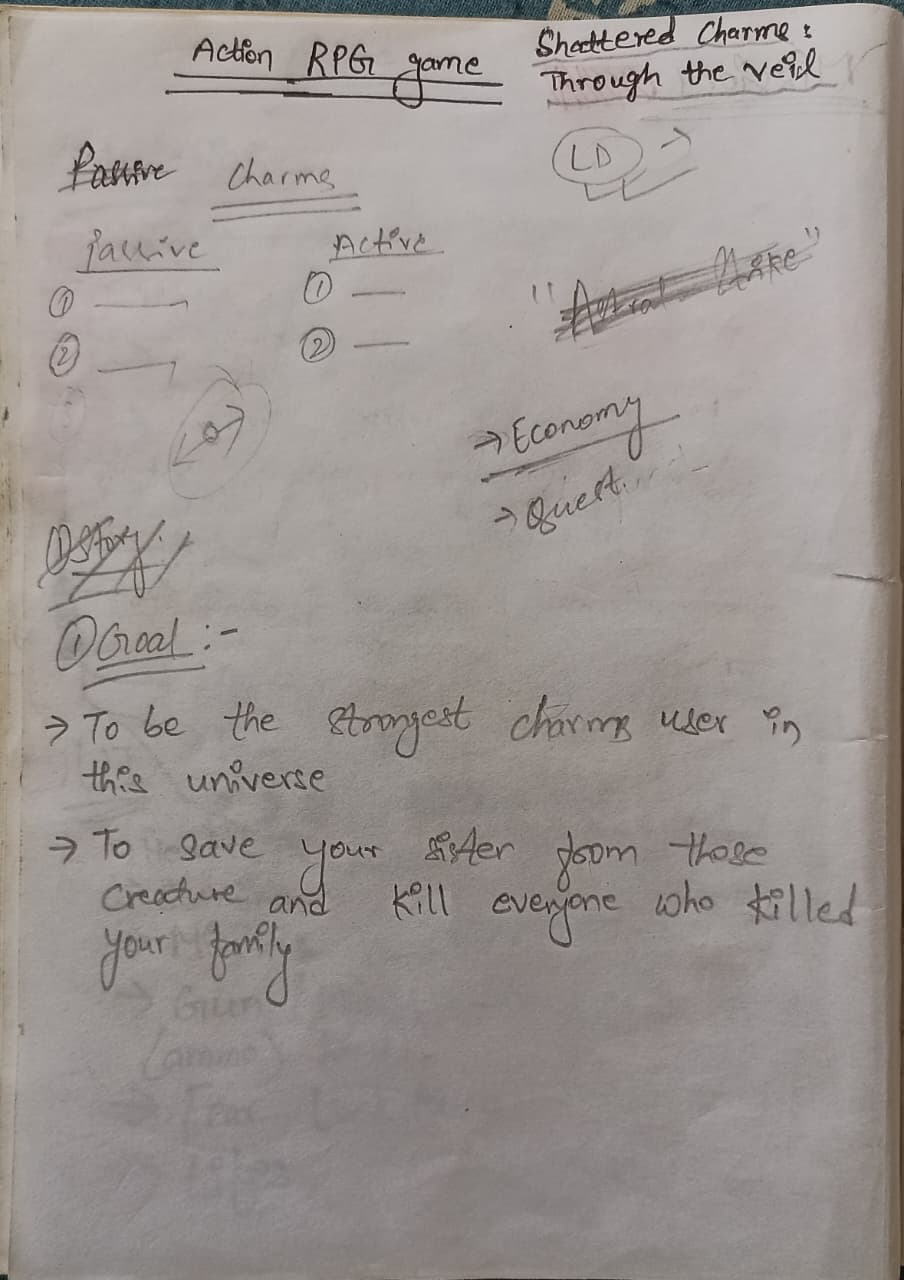 Action RPG game
Shattered Charms :
Through the veil
Passive Charms
LD
Passive Active
① ①
② ②
→ Economy
→ Quest
① Story
① Goal :-
→ To be the strongest charms user in
this universe
→ To save your sister from those
creature and kill everyone who killed
your family
→ Gun
(ammo)